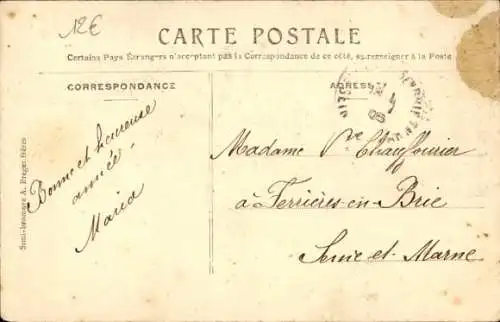 12€
CARTE POSTALE
Certains Pays Étrangers n'acceptant pas la Correspondance de ce côté, se renseigner à la Poste
CORRESPONDANCE
ADRESSE
Bonne et heureuse
année
Maria
Madame Vve Chauffournier
à Ferrières-en-Brie
Seine-et-Marne
Simili-bromure A. Breger frères